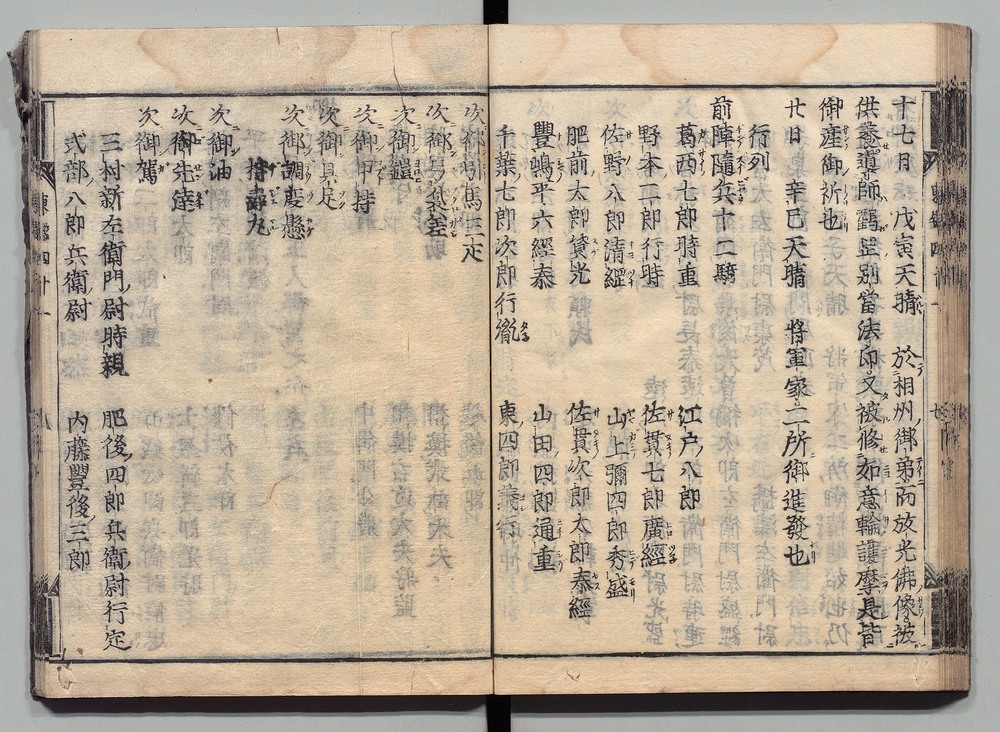 十七日 戊寅天晴 於相州御弟而放光佛像被
供養導師鶴岳別當法印又被修如意輪護摩是皆
御産御祈也
廿日 辛巳天晴 將軍家二所御進發也
行列
前陣隨兵十二騎
葛西七郎時重 江戸八郎
野本二郎行時 佐貫七郎廣經
佐野八郎清經 山上彌四郎秀盛
肥前太郎資光 佐貫次郎太郎泰經
豐嶋平六經泰 山田四郎通重
千葉七郎次郎行胤 東四郎義行
次御引馬三疋
次御弓袋差
次御鎧
次御甲持
次御具足
次御調度懸
持壽丸
次御油
次御先達
次御駕
三村新左衛門尉時親 肥後四郎兵衛尉行定
式部八郎兵衛尉 内藤豐後三郎
東鑑四十一